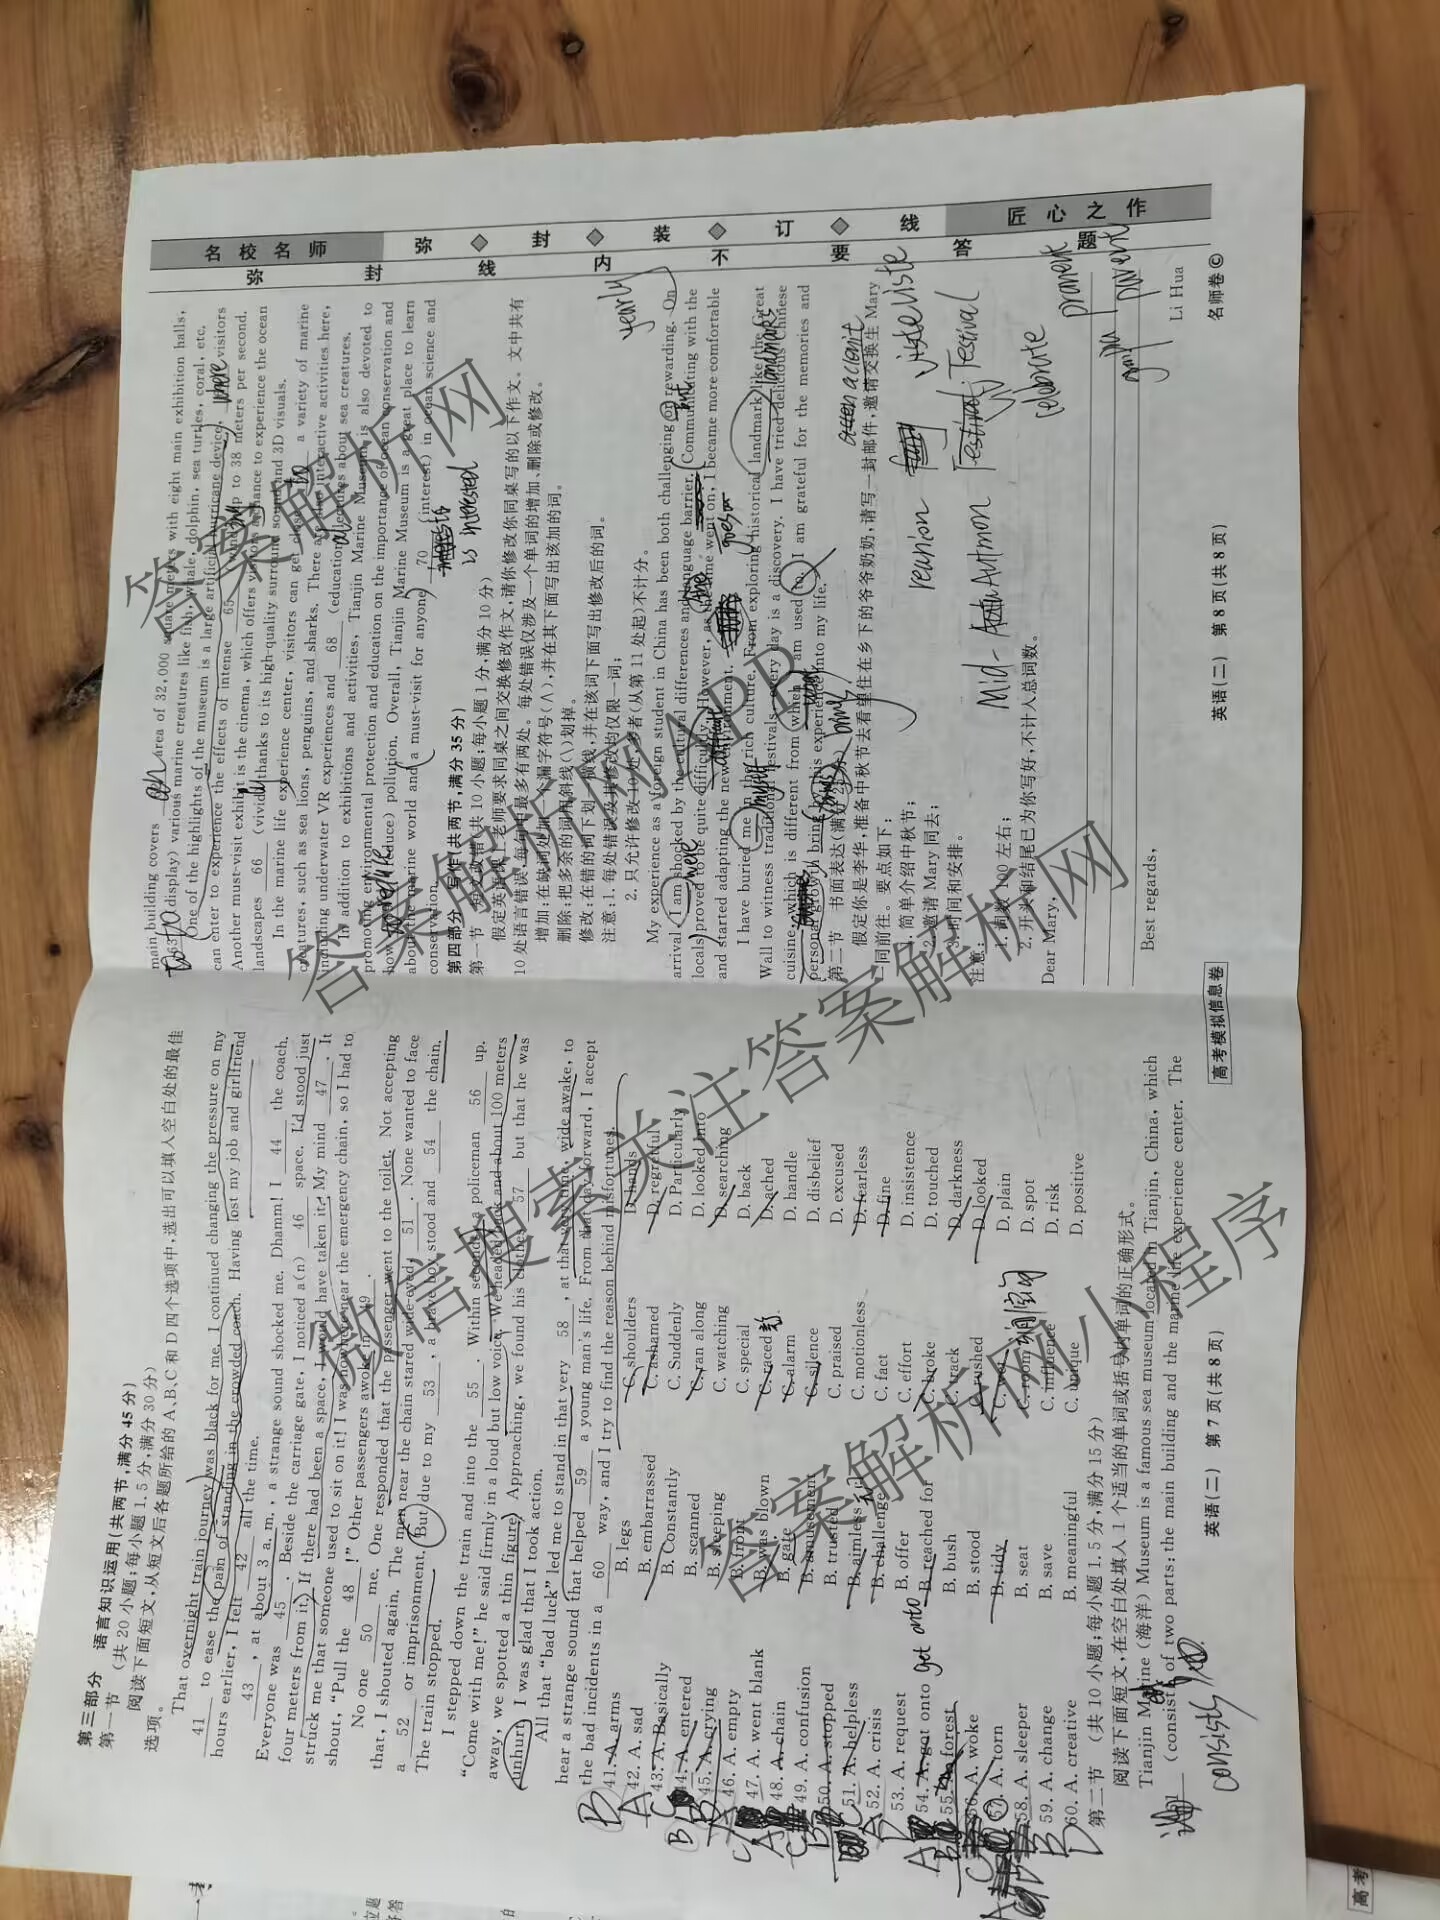 第三部分 语言知识运用(共两节,满分 45 分)
第一节 (共 20 小题;每小题 1.5 分,满分 30 分)
阅读下面短文,从短文后各题所给的 A、B、C 和 D 四个选项中,选出可以填入空白处的最佳
选项。
That overnight train journey was black for me. I continued changing the pressure on my
41 to ease the pain of standing in the crowded coach. Having lost my job and girlfriend
hours earlier, I felt 42 all the time.
43 , at about 3 a. m., a strange sound shocked me. Dhamm! I 44 the coach.
Everyone was 45 . Beside the carriage gate, I noticed a(n) 46 space. I'd stood just
four meters from it. If there had been a space, I would have taken it. My mind 47 . It
struck me that someone used to sit on it! I was nowhere near the emergency chain, so I had to
shout, "Pull the 48 !" Other passengers awoke in 49 .
No one 50 me. One responded that the passenger went to the toilet. Not accepting
that, I shouted again. The men near the chain stared wide-eyed, 51 . None wanted to face
a 52 or imprisonment. But due to my 53 , a brave boy stood and 54 the chain.
The train stopped.
I stepped down the train and into the 55 . Within seconds, a policeman 56 up.
"Come with me!" he said firmly in a loud but low voice. We headed back and about 100 meters
away, we spotted a thin figure. Approaching, we found his clothes 57 but that he was
unhurt. I was glad that I took action.
All that "bad luck" led me to stand in that very 58 , at that very time, wide awake, to
hear a strange sound that helped 59 a young man's life. From that day forward, I accept
the bad incidents in a 60 way, and I try to find the reason behind misfortunes.
41. A. arms B. legs C. shoulders D. hands
42. A. sad B. embarrassed C. ashamed D. regretful
43. A. Basically B. Constantly C. Suddenly D. Particularly
44. A. entered B. scanned C. ran along D. looked into
45. A. crying B. sleeping C. watching D. searching
46. A. empty B. front C. special D. back
47. A. went blank B. was blown C. raced D. ached
48. A. chain B. gate C. alarm D. handle
49. A. confusion B. amusement C. silence D. disbelief
50. A. stopped B. trusted C. praised D. excused
51. A. helpless B. aimless C. motionless D. fearless
52. A. crisis B. challenge C. fact D. fine
53. A. request B. offer C. effort D. insistence
54. A. got onto B. reached for C. broke D. touched
55. A. forest B. bush C. track D. darkness
56. A. woke B. stood C. rushed D. looked
57. A. torn B. tidy C. wet D. plain
58. A. sleeper B. seat C. room D. spot
59. A. change B. save C. influence D. risk
60. A. creative B. meaningful C. unique D. positive
第二节 (共 10 小题;每小题 1.5 分,满分 15 分)
阅读下面短文,在空白处填入 1 个适当的单词或括号内单词的正确形式。
Tianjin Marine (海洋) Museum is a famous sea museum located in Tianjin, China, which
(consist) of two parts: the main building and the marine life experience center. The
consists
英语(二) 第 7 页(共 8 页)
main building covers an area of 32,000 square meters with eight main exhibition halls,
display) various marine creatures like fish, whale, dolphin, sea turtles, coral, etc.
One of the highlights of the museum is a large artificial hurricane device, where visitors
can enter to experience the effects of intense 65 (wind) up to 38 meters per second.
Another must-visit exhibit is the cinema, which offers visitors a chance to experience the ocean
landscapes 66 (vivid) thanks to its high-quality surround sound and 3D visuals.
In the marine life experience center, visitors can get close to a variety of marine
creatures, such as sea lions, penguins, and sharks. There are also interactive activities here,
including underwater VR experiences and 68 (education) lectures about sea creatures.
In addition to exhibitions and activities, Tianjin Marine Museum is also devoted to
promoting environmental protection and education on the importance of ocean conservation and
how (reduce) pollution. Overall, Tianjin Marine Museum is a great place to learn
about the marine world and a must-visit for anyone 70 (interest) in ocean science and
conservation.
is interested
第四部分 写作(共两节,满分 35 分)
第一节 短文改错(共 10 小题;每小题 1 分,满分 10 分)
假定英语课上老师要求同桌之间交换修改作文,请你修改你同桌写的以下作文。文中共有
10 处语言错误,每句中最多有两处。每处错误仅涉及一个单词的增加、删除或修改。
增加:在缺词处加一个漏字符号(∧),并在其下面写出该加的词。
删除:把多余的词用斜线(\)划掉。
修改:在错的词下划一横线,并在该词下面写出修改后的词。
注意:1. 每处错误及其修改均仅限一词;
2. 只允许修改 10 处,多者(从第 11 处起)不计分。
yearly
My experience as a foreign student in China has been both challenging on rewarding. On
arrival, I am shocked by the cultural differences and language barrier. Communicating with the
locals proved to be quite difficultly. However, as the time went on, I became more comfortable
and started adapting the new environment.
I have buried me in the rich culture. From exploring historical landmark like the Great
Wall to witness traditional festivals, every day is a discovery. I have tried delicious Chinese
cuisine, which is different from which I am used to. I am grateful for the memories and
personal growth bring by this experience into my life.
第二节 书面表达(满分 25 分)
假定你是李华,准备中秋节去看望住在乡下的爷爷奶奶,请写一封邮件,邀请交换生 Mary
一同前往。要点如下:
1. 简单介绍中秋节;
2. 邀请 Mary 同去;
3. 时间和安排。
注意:
1. 词数 100 左右;
2. 开头和结尾已为你写好,不计入总词数。
reunion
Mid-Autumn Festival
celebrate
Dear Mary,
Best regards,
Li Hua
高考模拟信息卷
英语(二) 第 8 页(共 8 页)
名师卷©
名校名师
弥封装订线
匠心之作
弥封线内不要答题
答案解析网
答案解析网APP
微信搜索关注答案解析网
答案解析网小程序
高考